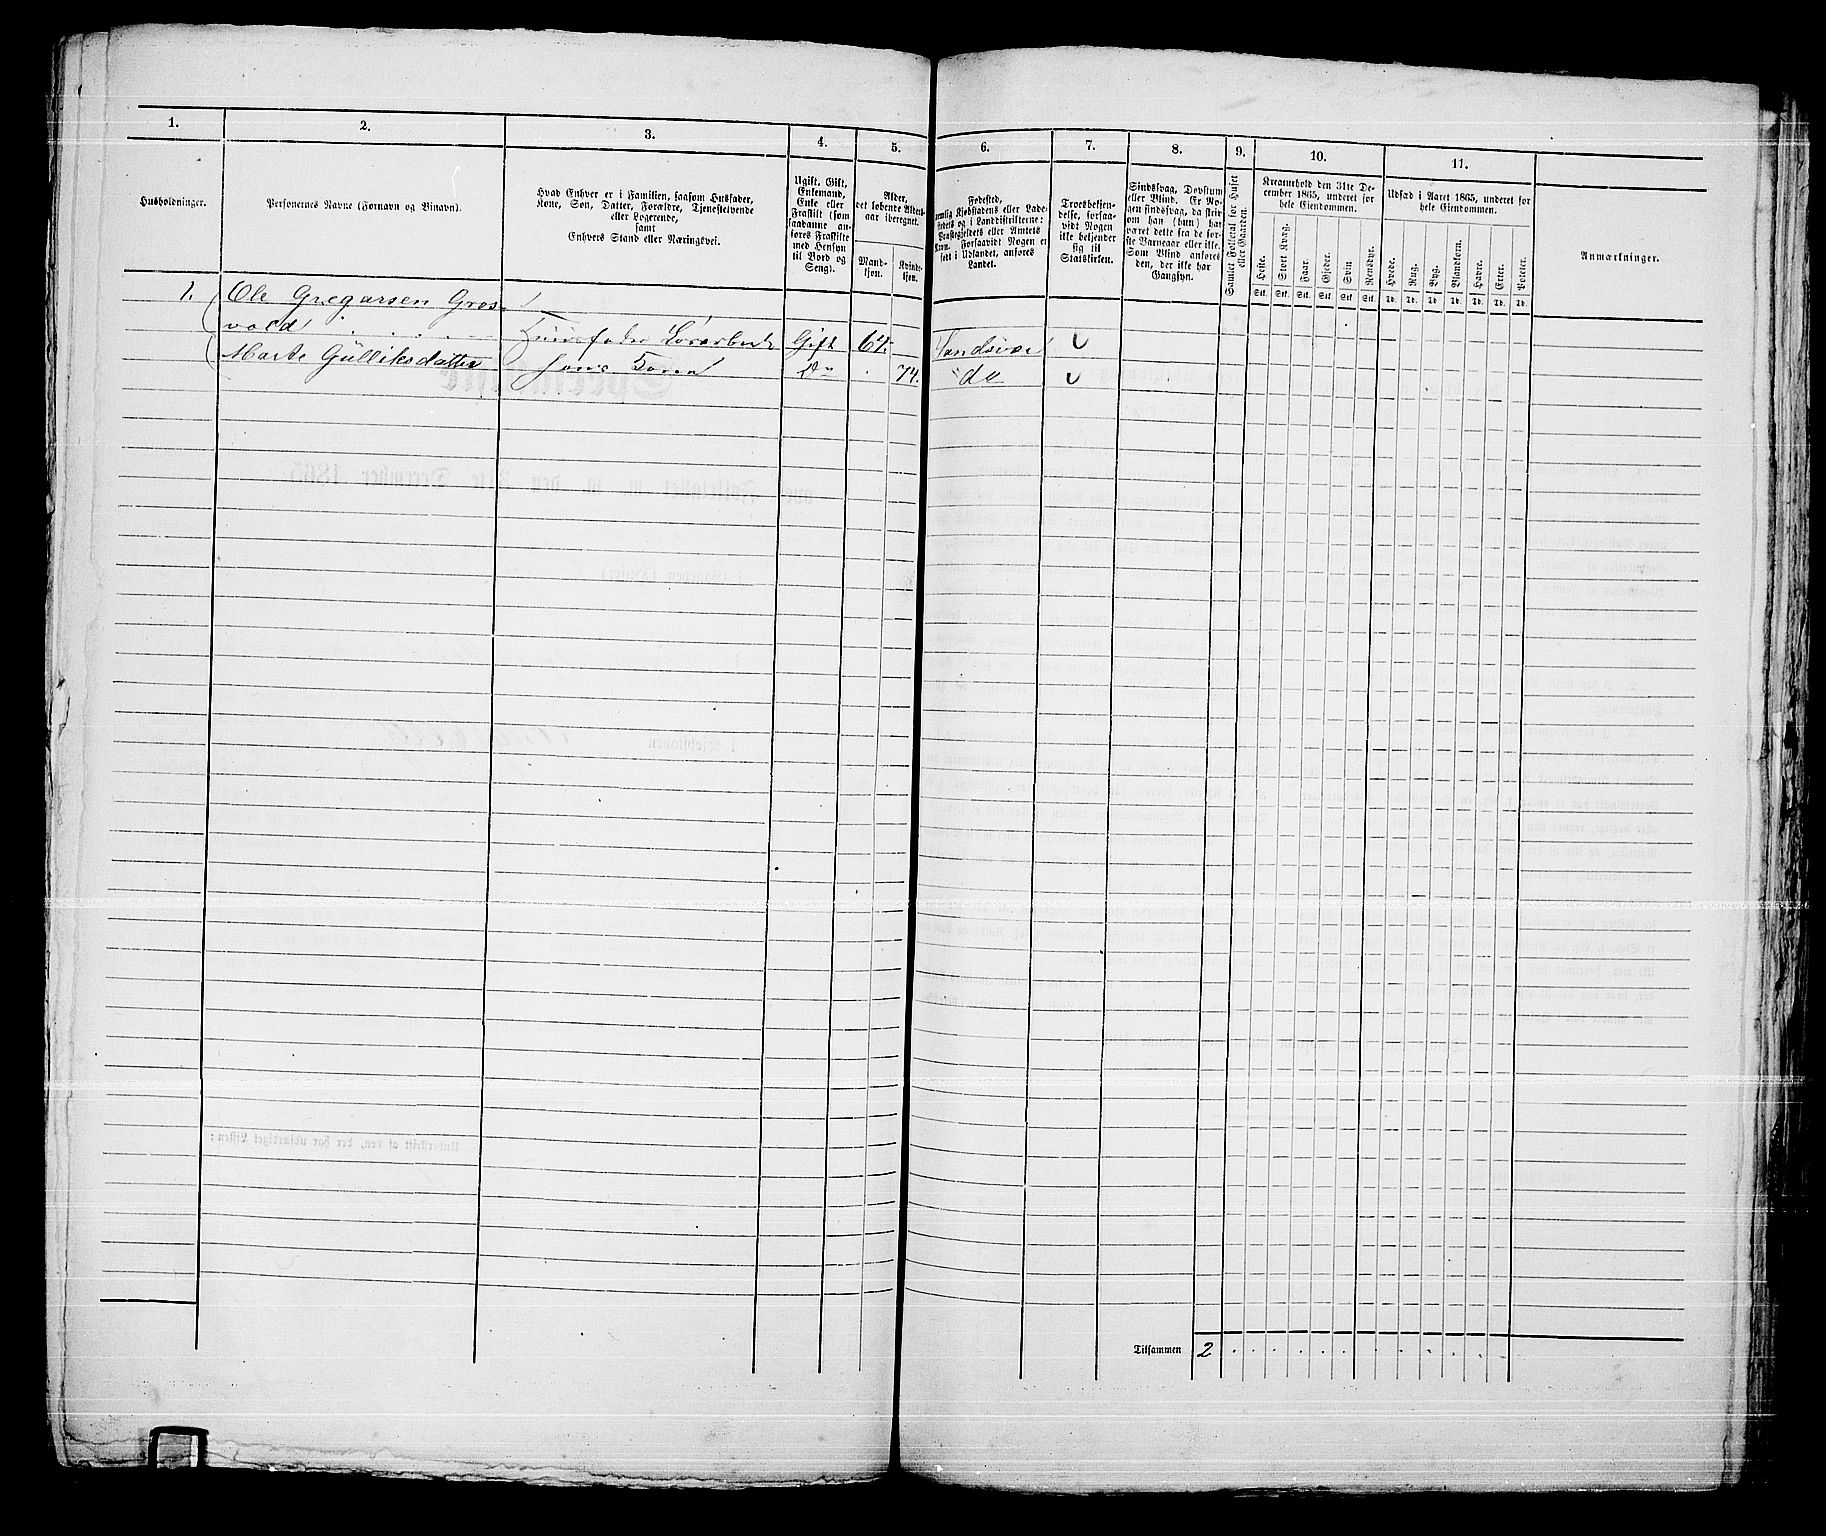 1.
2.
3.
4.
5.
6.
7.
8.
9.
10.
11.
Husholdninger.
Personernes Navne (Fornavn og Binavn).
Hvad Enhver er i Familien, saasom Husfader,
Kone, Søn, Datter, Forældre, Tjenestetyende
eller Logerende,
samt
Enhvers Stand eller Næringsvei.
Ugift, Gift,
Enkemand,
Enke eller
Fraskilt (som
saadanne an-
føres Fraskilte
med Hensyn
til Bord og
Seng).
Alder,
det løbende Alders-
aar iberegnet.
Mand-
kjøn.
Kvinde-
kjøn.
Fødested,
nemlig Kjøbstadens eller Lade-
stedets og i Landdistrikterne:
Præstegjeldets eller Amtets
Navn. Forsaavidt Nogen er
født i Udlandet, anføres
Landet.
Troesbekjen-
delse, forsaa-
vidt Nogen
ikke bekjender
sig til
Statskirken.
Sindssvag, Døvstum
eller Blind. Er No-
gen sindssvag, da skriv
om han (hun) har
været dette fra de før-
ste Barneaar eller ikke.
Som Blind anføres
den, der ikke har
Gangsyn.
Samlet Folketal for Huset
eller Gaarden.
Kreaturhold den 31te De-
cember 1865, underet for
hele Eiendommen.
Heste.
Stort Kvæg.
Faar.
Gjeder.
Svin
Rensdyr.
Stk. Stk. Stk. Stk. Stk. Stk.
Udsæd i Aaret 1865, underet for
hele Eiendommen.
Hvede.
Rug.
Byg.
Blandkorn.
Havre.
Erter.
Poteter.
Td. Td. Td. Td. Td. Td. Td.
Anmærkninger.
1. Ole Gregarsen Gros-
vold Huusfader Gift 62. Sandsvær
Marte Gülliksdatter hans Kone Do 74. do
Tilsammen 2